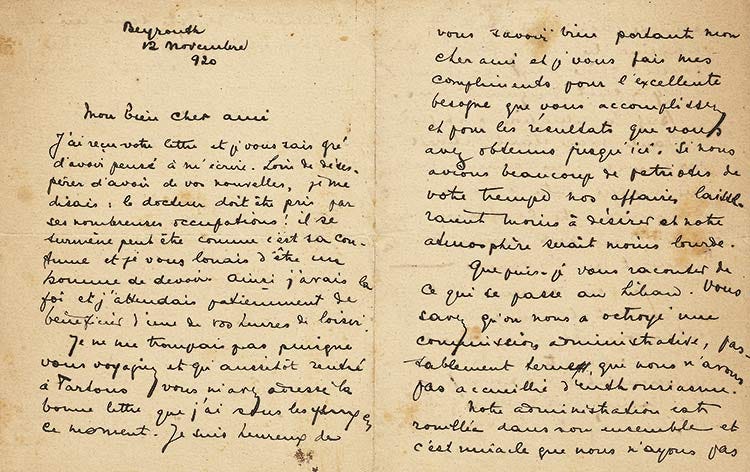 Beyrouth
12 novembre
920
Mon bien cher ami
J'ai reçu votre lettre et je vous sais gré
d'avoir pensé à m'écrire. Loin de déses-
pérer d'avoir de vos nouvelles, je me
disais : le docteur doit être pris par
ses nombreuses occupations ! il se
surmène peut être comme c'est sa cou-
tume et je vous louais d'être un
homme de devoir. Ainsi j'avais la
foi et j'attendais patiemment de
bénéficier d'une de vos heures de loisir.
Je ne me trompais pas puisque
vous voyagiez et qu'aussitôt rentré
à Tartous vous m'avez adressé la
bonne lettre que j'ai sous les yeux en
ce moment. Je suis heureux de
vous savoir bien portant mon
cher ami et j' vous fais mes
compliments pour l'excellente
besogne que vous accomplissez
et pour les résultats que vous
avez obtenus jusqu'ici. Si nous
avions beaucoup de patriotes de
votre trempe nos affaires laisse-
raient moins à désirer et notre
atmosphère serait moins lourde.
Que puis-je vous raconter de
ce qui se passe au Liban. Vous
savez qu'on nous a octroyé une
commission administrative, pas-
sablement terne, que nous n'avons
pas accueillie d'enthousiasme.
Notre administration est
rouillée dans son ensemble et
c'est miracle que nous n'ayons pas